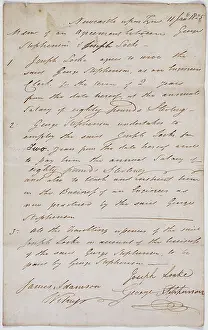 Newcastle upon Tyne
Mem of an Agreement between George
Stephenson & Joseph Locke
1 Joseph Locke agree to serve the
said George Stephenson, as an Engineer
for the term of
from the date hereof at the annual
Salary of eighty Pounds Sterling
2. George Stephenson undertakes to
employ the said Joseph Locke for
Two years from the date hereof and
to pay him the annual Salary of
eighty pounds Sterling
and also to teach and instruct him
in the Business of an Engineer as
now practised by the said George
Stephenson
3. All the travelling expences of the said
Joseph Locke on account of the business
of the said George Stephenson to be
paid by George Stephenson
Joseph Locke
James Adamson
George Stephenson
Witness